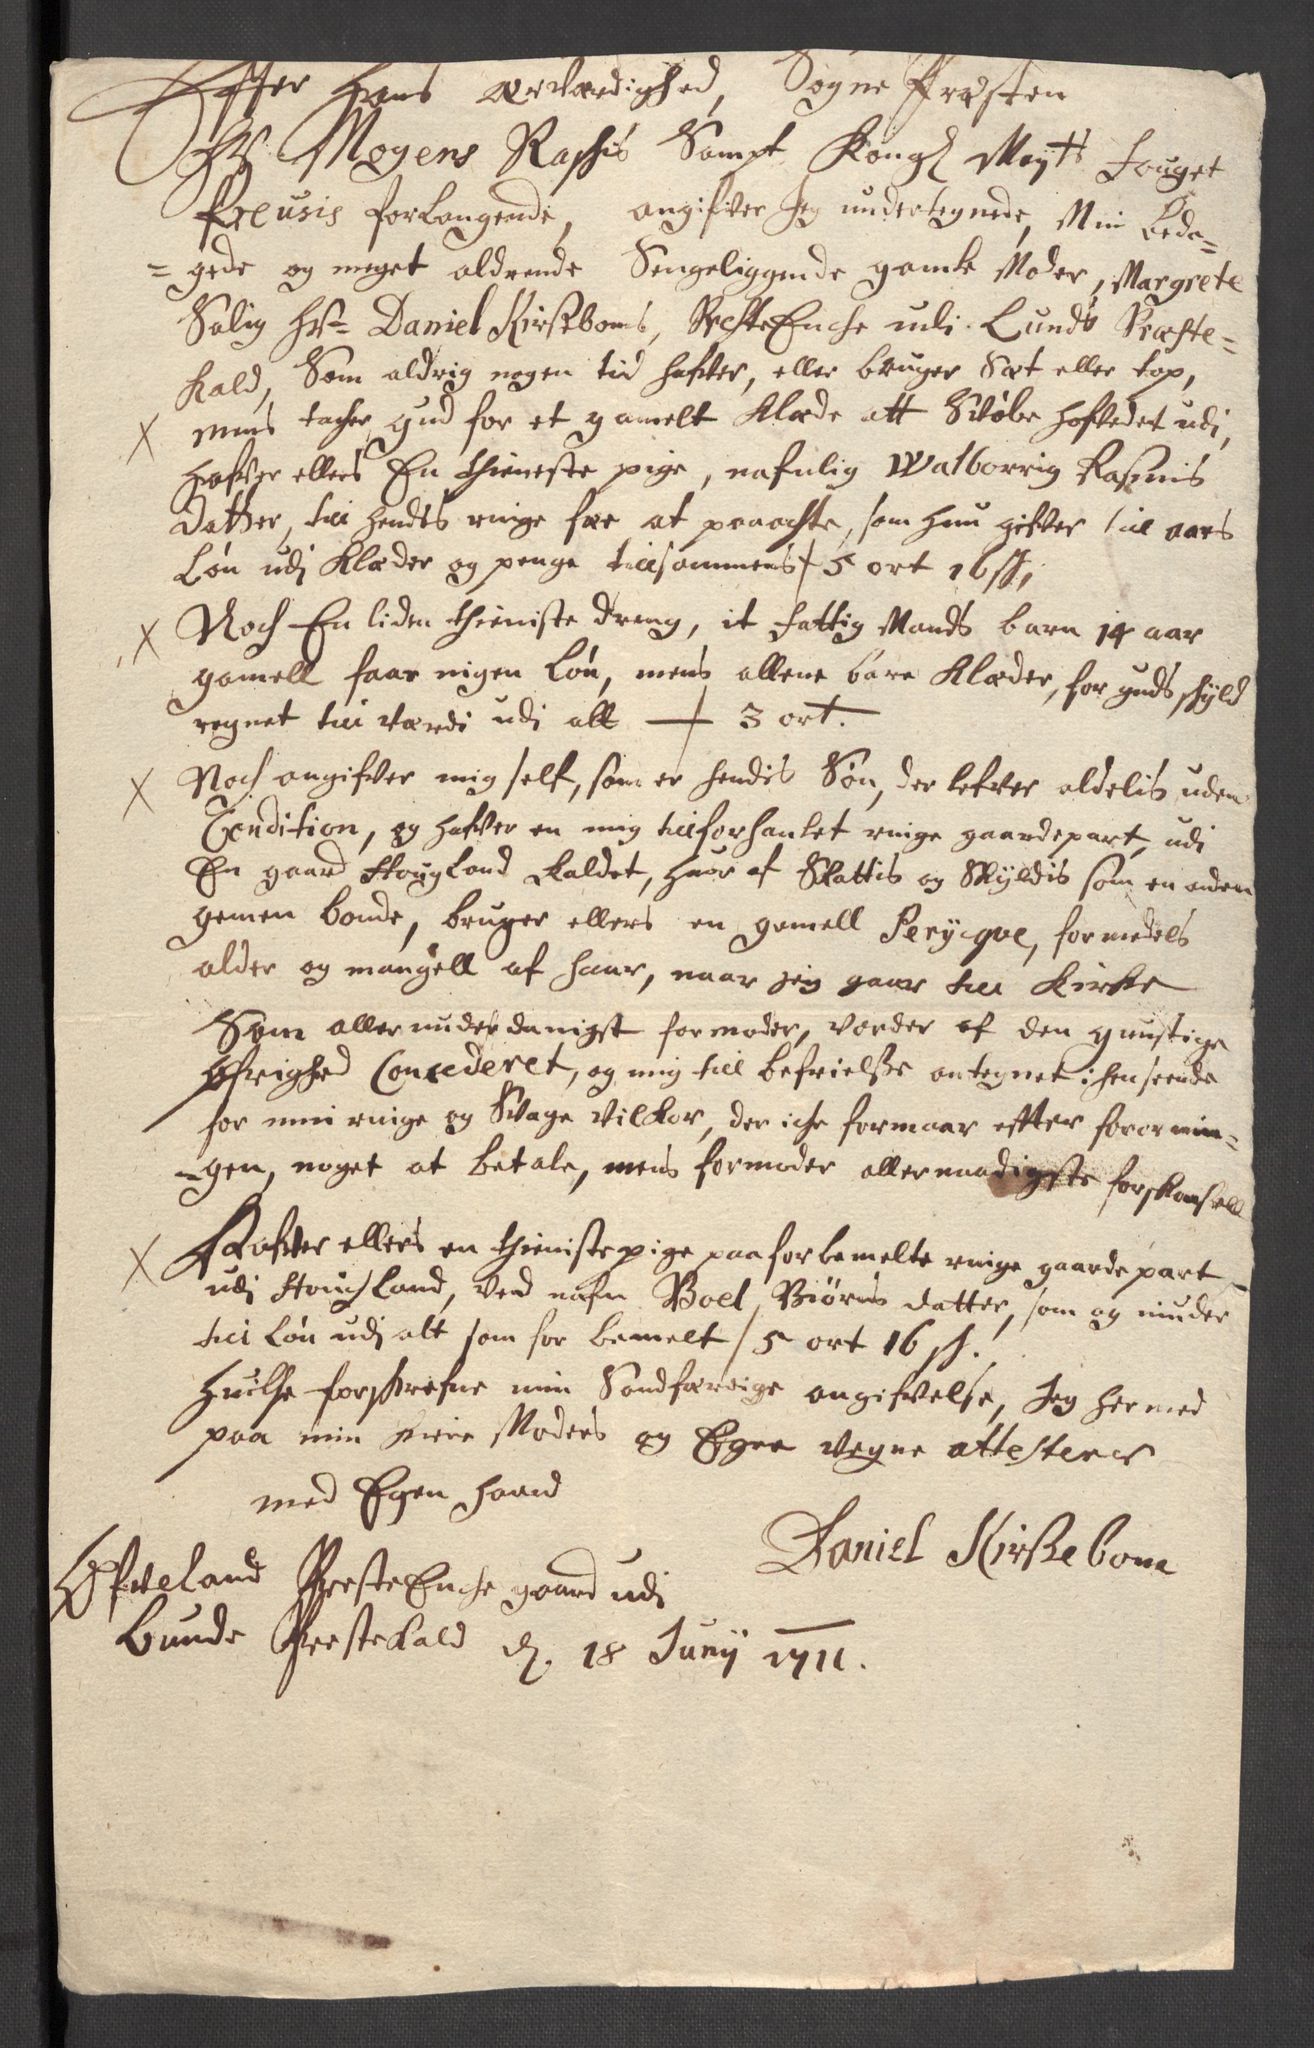 Efter Hans ærværdighed, Sogne Præsten
Hr Mogens Raschis Sampt Kongl Mayts Fouget
Preusis forlangende, angifver Jeg undertegnede, Min Beda=
=gede og meget aldrende Sengeliggende gamle Moder, Margrete
Salig Hr= Daniel Kirseboms, Præste Enche udi Lunds Præste=
kald, Som aldrig nogen tid hafver, eller bruger Sæt eller top,
mens tacher Gud for et gamelt Klæde att Svøbe hofvedet udi,
hafver ellers En thieneste pige, nafnlig Walborrig Rasmis
Datter, till hendes ringe fæe at paaachte, som hun gifver till aars
Løn udj Klæder og penge tillsammens / 5 ort 16 sh,
Noch En liden thieniste dreng, it fattig Mands barn 14 aar
gamell faar ingen Løn, mens allene bare Klæder, for guds skyld
regnet till værdi udi alt — 3 ort.
Noch angifver mig self, som er hendis Søn, der lefver aldelis uden
Condition, og hafver en mig tillforhanlet ringe gaardepart, udi
En gaard Hougland kaldet, huor af Skattis og Skyldis som en anden
gemen bonde, bruger ellers en gamell Perycqve, formedels
alder og mangell af haar, naar jeg gaar till Kirke
Som allerunderdanigst formoder, vorder af den gunstige
øfrighed Concederet, og mig till befrielsse antegnet i henseende
for min ringe og Svage vilkor, der iche formaar effter forornin=
=gen, noget at betale, mens formoder allernaadigste forskonsell
Hafver ellers en thienistepige paa forbemelte ringe gaarde part
udi Houchland, ved nafn Boel Biørns datter, som og niuder
till Løn udj alt som for bemelt / 5 ort 16 sh.
Huilche forskrefne min Sandfærdige angifvelse, Jeg hermed
paa min kiere Moders og Egne vegne attesterer
med Egen haand
Daniel Kirsebom
Øfveland Preste Enche gaard udi
Lunds Prestekald d. 18 Junij 1711.